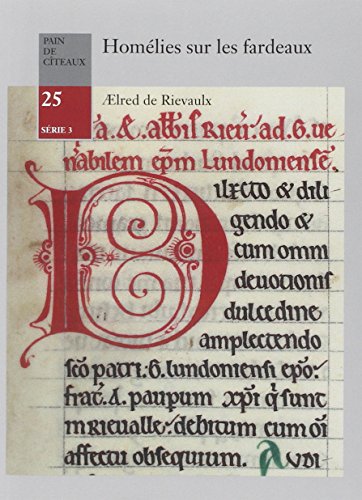 PAIN
DE
CÎTEAUX
25
SÉRIE 3
Homélies sur les fardeaux
Ælred de Rievaulx
a. & abb̄is Rieu̅. ad. G. ue
nabilem ep̅m Lundoniense̅.
Dilecto & dili
gendo &
cum omni
deuotionis
dulcedine
amplectendo
sc̅o patri. G. lundoniensi ep̅o.
frat̅. A. pauperum xp̅i q̅ sunt
in Rieualle. debitum cum oi̅
affectu obsequium. Audi